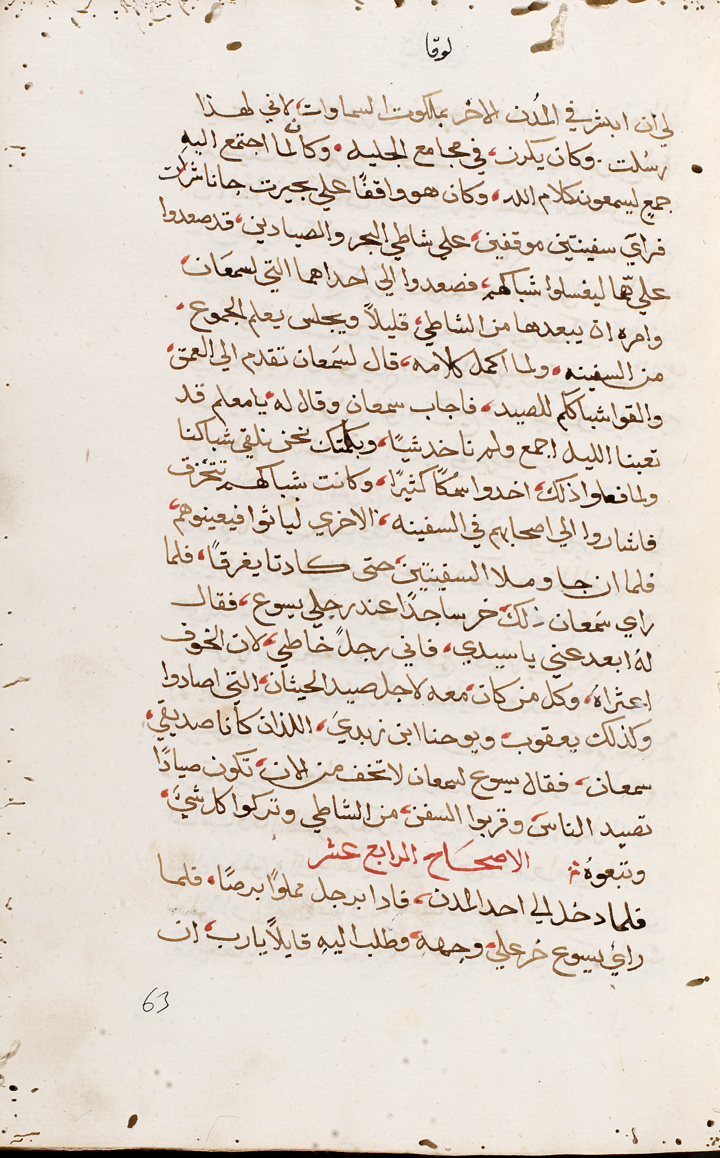 لوقا
لي ان ابشر في المدن الاخر بملكوت السماوات، لاني لهذا
رسلت . وكان يكرز، في مجامع الجليل . وكان لما اجتمع اليه
جمع ليسمعون كلام الله، وكان هو واقفًا علي بحيرت جاناشرات
فراي سفينتين موقفين، علي شاطي البحر والصيادين، قد صعدوا
عليهما ليغسلوا شباكهم، فصعدوا الي احداهما التي لسمعان،
وامره ان يبعدها من الشاطي، قليلاً ويجلس يعلم الجموع .
من السفينه . ولما اكمل كلامه، قال لسمعان تقدم الي العمق،
والقوا شباككم للصيد، فاجاب سمعان وقال له يا معلم قد
تعبنا الليل اجمع ولم ناخد شيًا، وبكلمتك نحن نلقي شباكنا
ولما فعلوا ذلك، اخدوا سمكًا كثيرًا، وكانت شباكهم تتخرق
فاشاروا الي اصحابهم في السفينه، الاخري لياثوا فيعينوهم،
فلما ان جا وملا السفينتين، حتي كادتا يغرقا، فلما
راي سمعان ذلك، خر ساجدًا عند رجلي يسوع، فقال
لهُ ابعد عني يا سيدي، فاني رجلً خاطي، لان الخوف
اعتراهُ، وكل من كان معه لاجل صيد الحيثان، التي اصادوا
وكذلك يعقوب، ويوحنا ابن زبدي، اللذان كانا صديقي،
سمعان، فقال يسوع لسمعان لا تخف من الان، تكون صيادًا
تصيد الناس، وقربوا السفن، من الشاطي وتركوا كل شي،
وتبعوهُ الاصحاح الرابع عشر
فلما دخل الي احد المدن، فادا برجل مملوًا برصًا، فلما
راي يسوع خر علي، وجهه، وطلب اليه قايلاً يا رب، ان
63